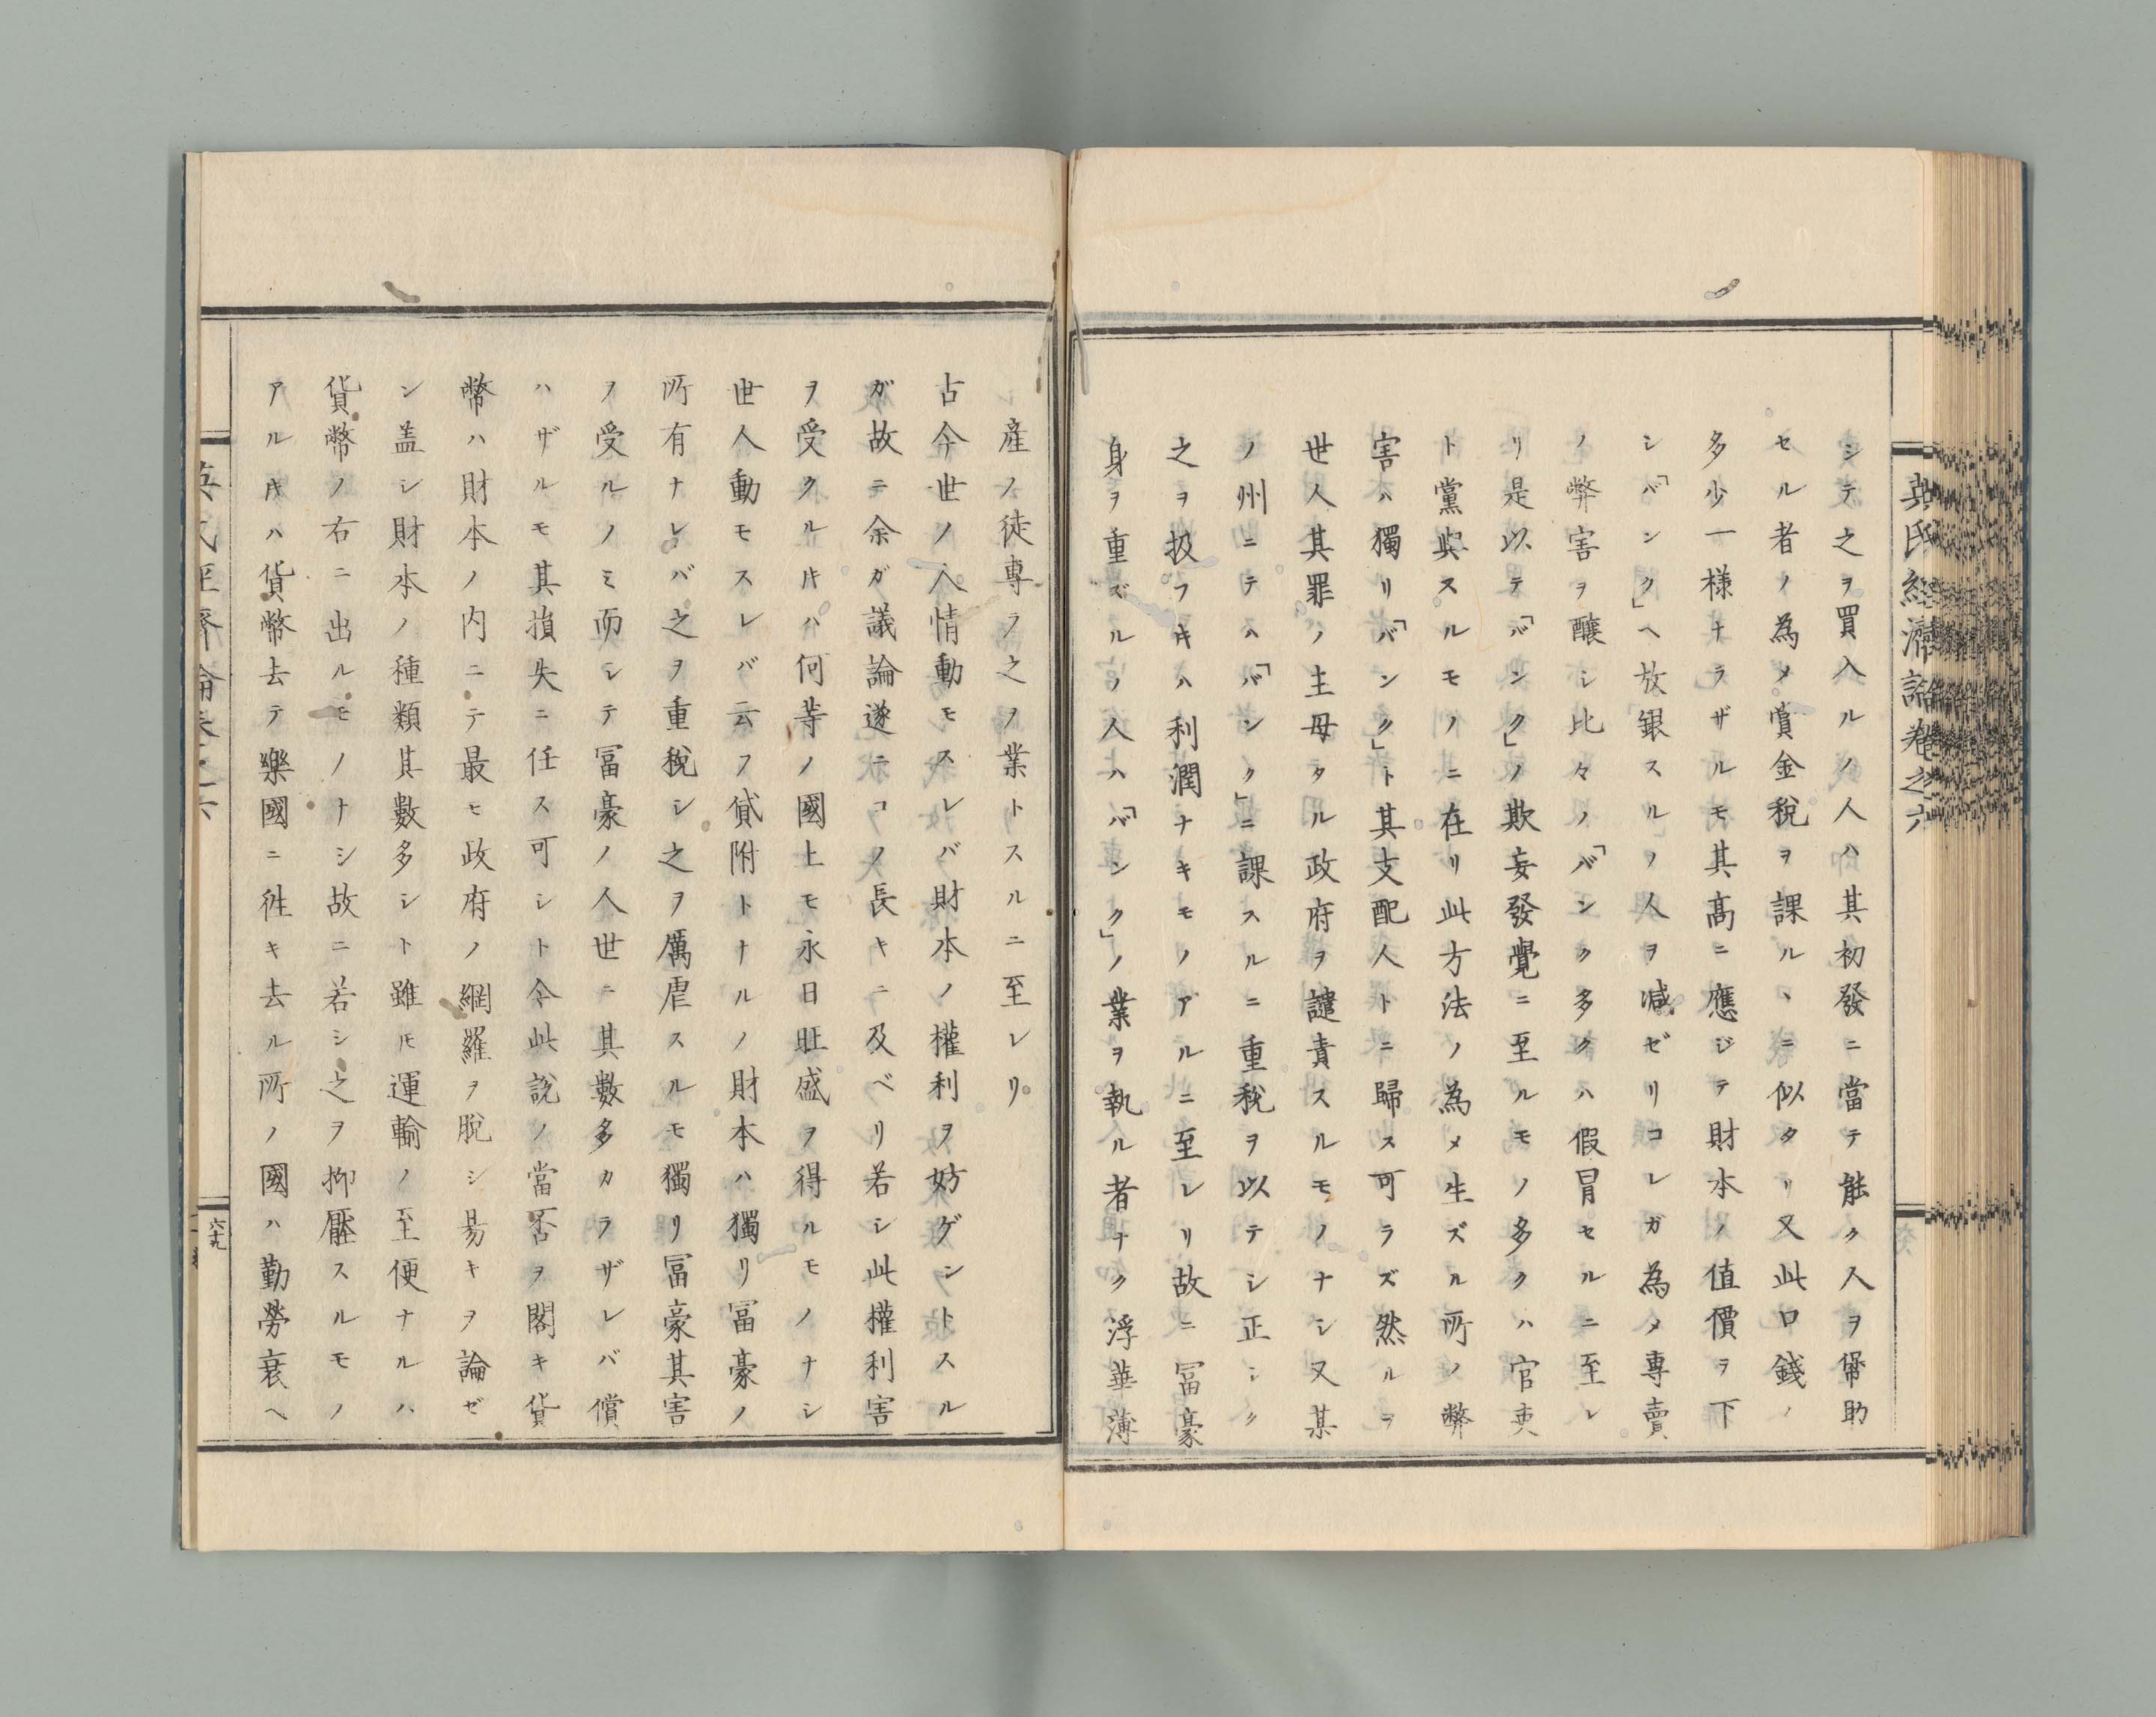 英氏經濟論卷之六
シテ之ヲ買入ルノ人ハ其初發ニ當テ能ク人ヲ幇助
セル者ノ為メ賞金稅ヲ課ルヽニ似タリ又此口錢ノ
多少一樣ナラザルモ其髙ニ應ジテ財本ノ値價ヲ下
シ「バンク」ヘ放銀スルノ人ヲ减ゼリコレガ為メ專賣
ノ弊害ヲ釀シ比々ノ「バンク多クハ假冒セルニ至レ
リ是以テ「バンク」ノ欺妄發覺ニ至ルモノ多クハ官吏
ト黨與スルモノニ在リ此方法ノ為メ生ズル所ノ弊
害ハ獨リ「バンク」ト其支配人トニ歸ス可ラズ然ルヲ
世人其罪ノ主母タル政府ヲ譴責スルモノナシ又某
ノ州ニテハ「バンク」ニ課スルニ重稅ヲ以テシ正シク
之ヲ扱フ𪜈ハ利潤ナキモノアルニ至レリ故ニ冨豪
身ヲ重ズルノ人ハ「バンク」ノ業ヲ執ル者ナク浮華薄
產ノ徒專ラ之ヲ業トスルニ至レリ
古今世ノ人情動モスレバ財本ノ權利ヲ妨ゲントスル
ガ故ニ余ガ議論遂ニコノ長キニ及ベリ若シ此權利害
ヲ受クル𪜈ハ何等ノ國土モ永日旺盛ヲ得ルモノナシ
世人動モスレバ云フ貸附トナルノ財本ハ獨リ冨豪ノ
所有ナレバ之ヲ重稅シ之ヲ厲虐スルモ獨リ冨豪其害
ノ受ルノミ而シテ冨豪ノ人世ニ其數多カラザレバ償
ハザルモ其損失ニ任ス可シト今此說ノ當否ヲ閣キ貨
幣ハ財本ノ内ニテ最モ政府ノ網羅ヲ脫シ昜キヲ論ゼ
ン盖シ財本ノ種類其數多シト雖𪜈運輸ノ至便ナルハ
貨幣ノ右ニ出ルモノナシ故ニ若シ之ヲ抑壓スルモノ
アル𪜈ハ貨幣去テ樂國ニ徃キ去ル所ノ國ハ勤勞衰ヘ
英氏經濟論卷之六
六十九